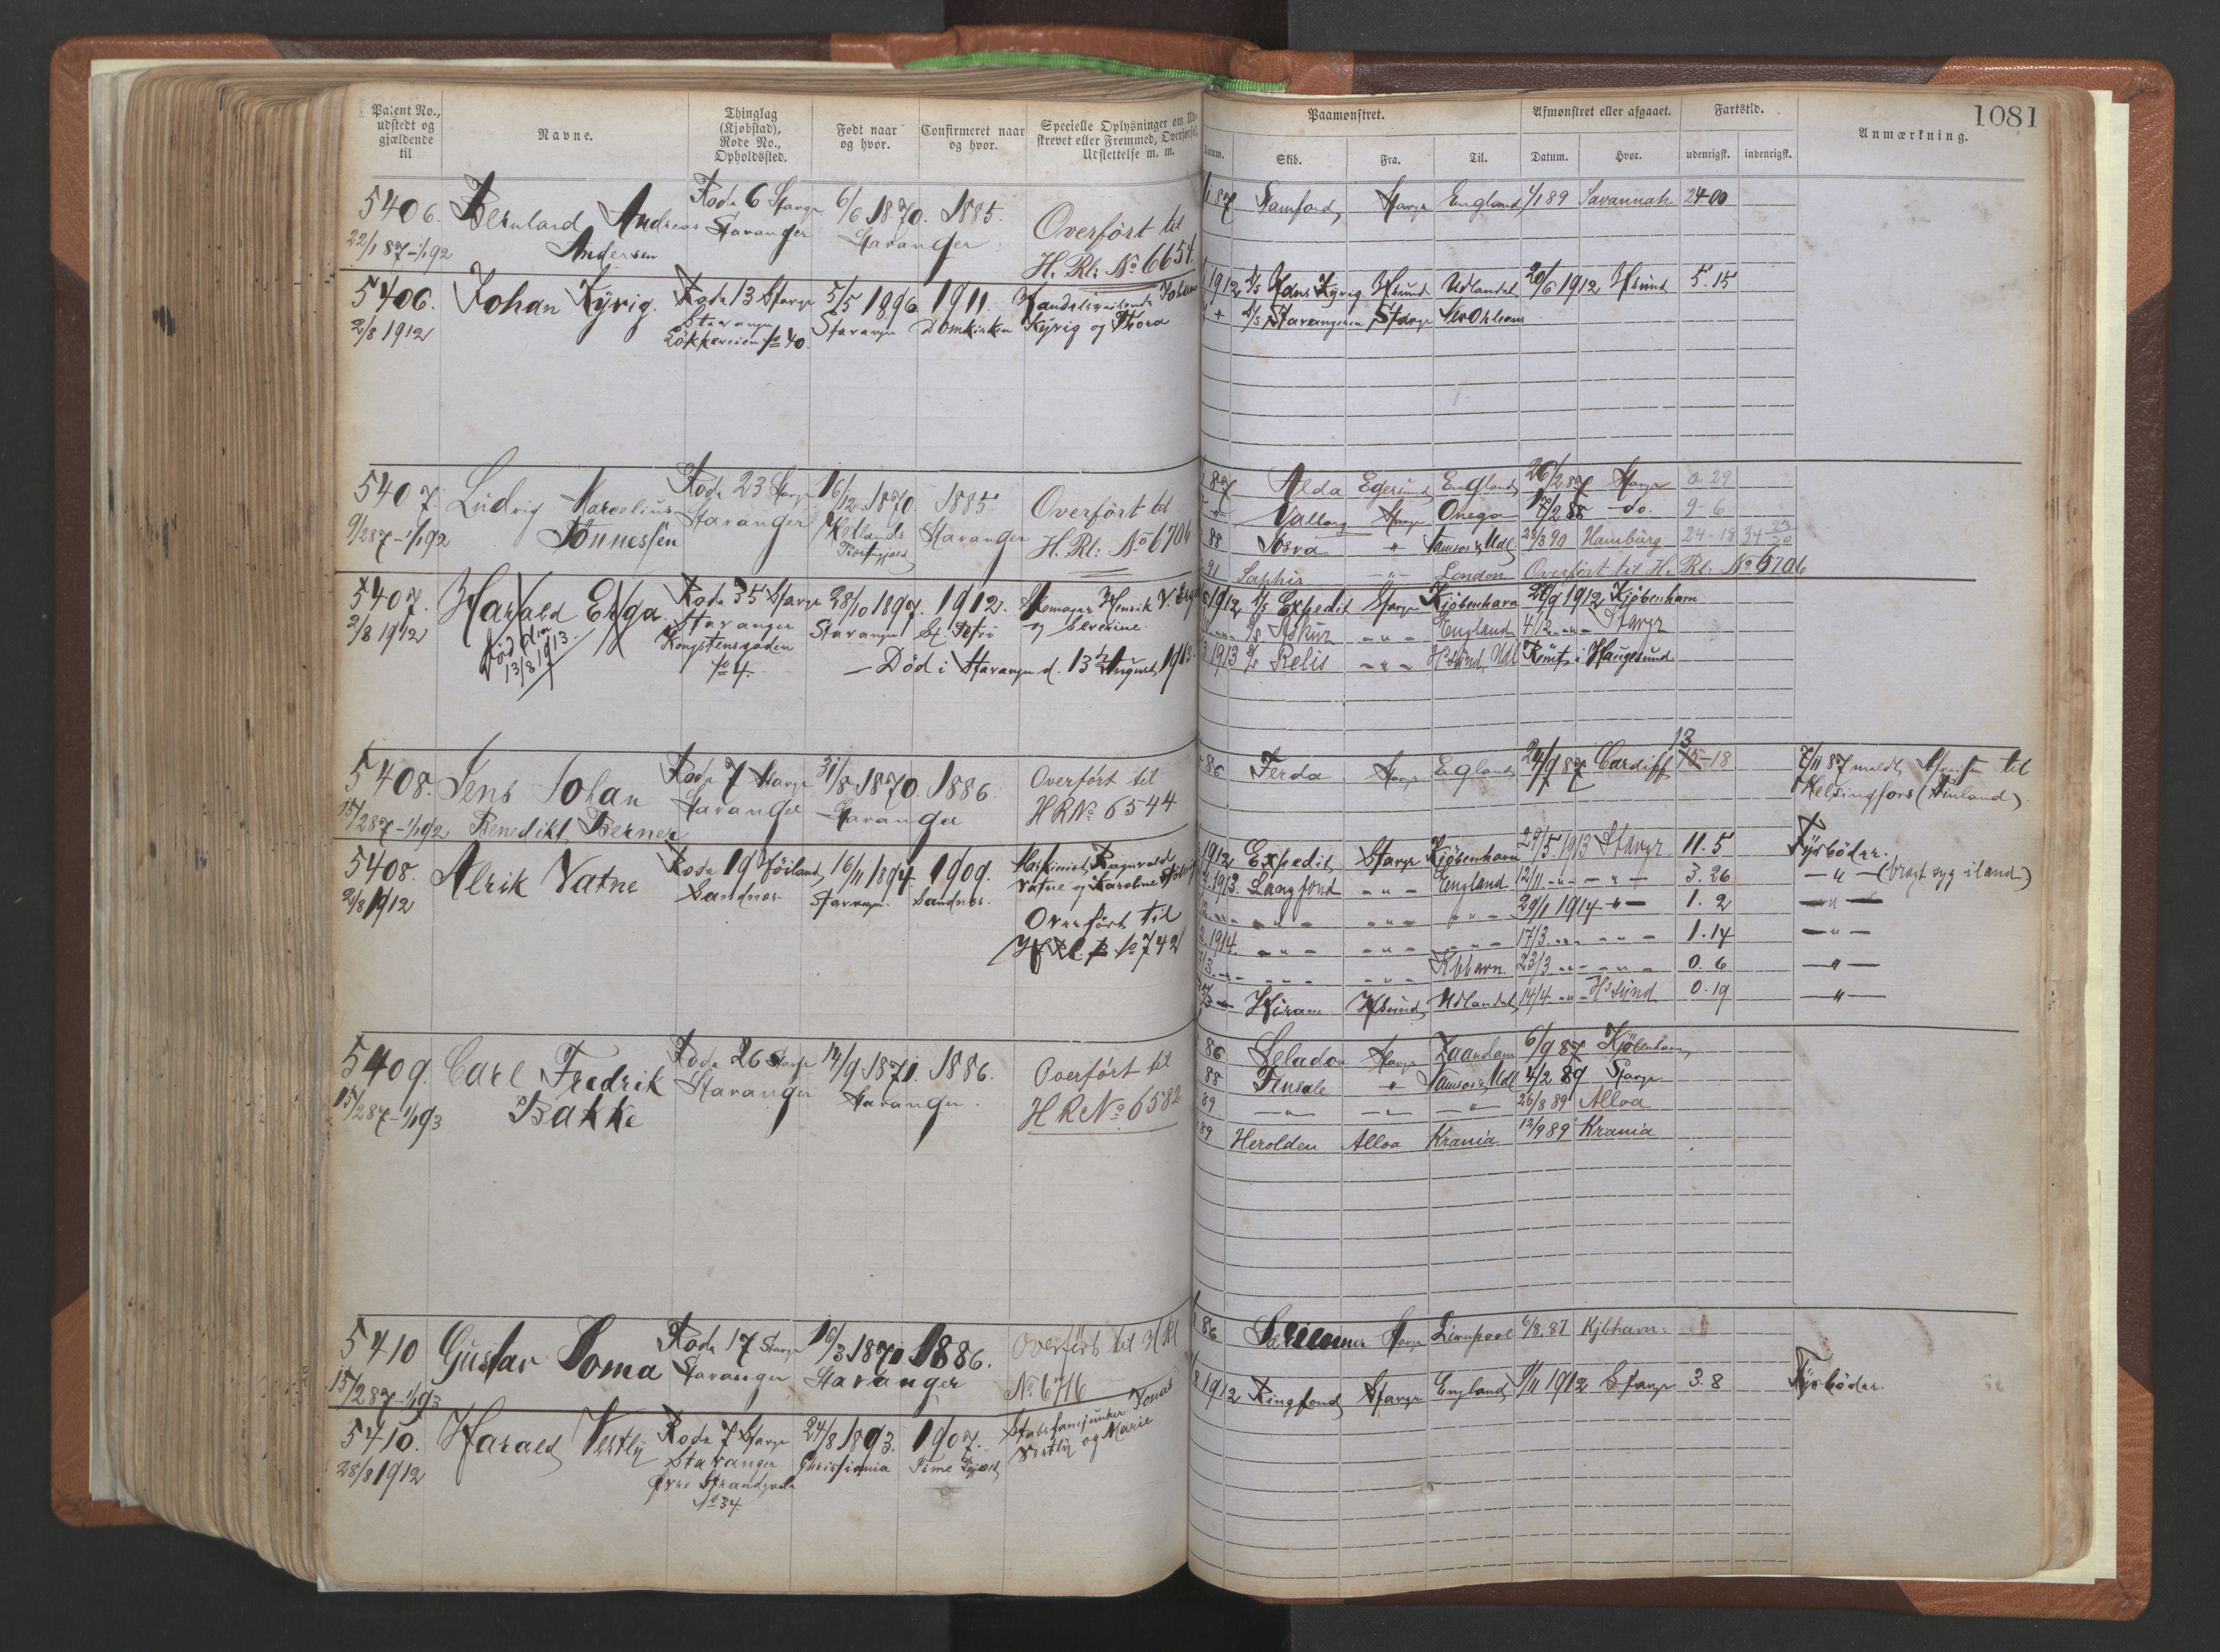 1081
Patent No., udstedt og gjældende til
Navne.
Thinglag (Kjøbstad), Rode No., Opholdssted.
Født naar og hvor.
Confirmeret naar og hvor.
Specielle Oplysninger om Ud-
skrevet eller Fremmed, Overførsel,
Udslettelse m. m.
Paamønstret.
Datum. Skib. Fra. Til.
Afmønstret eller afgaaet.
Datum. Hvor.
Fartstid.
udenrigsk. indenrigsk.
Anmærkning.
5406. Bernhard Andreas Rode 6 Stavgr 6/6 1870. 1885.
22/1 87-1/1 92 Andersen Stavanger Stavanger
Overført til
H. Rl: No 6654.
87 Stavgr England 1/1 89 Savannah 24-00
5406. Johan Kyrig. Rode 13 Stavgr 5/5 1896 1911. Handelsreisende Johan
2/8 1912 Stavanger Stavanger Domkirken Kyrig og Thora
Løkkeveien No 40.
1912 Hans Kyrig Hsund Udlandet 20/6 1912 Hsund 5.15
Stavangeren Stavgr
5407. Ludvig Marcelius Rode 23 Stavgr 16/12 1870. 1885.
9/2 87-1/1 92 Tønnessen Stavanger Stavanger
Overført til
H. Rl: No 6706
87 Alda Egersund England 26/2 87 Stavgr 29
Stavgr Onega 17/2 88 do. 9-6
88 28/3 90 Hamburg 24-18
91 Saphir London Overført til H. Rl: No 6706
5407. Harald Erga. Rode 35 Stavgr 28/10 1897. 1912. Skomager Henrik V. Erga
2/8 1912 Stavanger Stavanger St. Petri og Severine.
Kongstensgaden
No 4.
Død den
13/8 1913.
Død i Stavanger d. 13de August 1913.
1912 Expedit Stavgr Kjøbenhavn 1912 Kjøbenhavn
England 4/12 Stavgr
1913 Relis Hsund, Udl Rømt i Haugesund
5408. Jens Johan Rode 7 Stavgr 31/8 1870. 1886.
15/2 87-1/1 92 Benedikt Berner Stavanger Stavanger
Overført til
H R No 6544
86 Ferda Stavgr England 24/9 87 Cardiff 13 18
7/11 87 meldt til
Helsingfors (Finland).
5408. Alrik Vatne Rode 19 Jøiland, 16/11 1894. 1909. Maskinist Ragnvald
2/8 1912 Sandnes. Stavanger. Sandnes. Vatne og Karoline
Overført til
No 742
1912 Expedit Stavgr Kjøbenhavn 29/5 1913 Stavgr 11.5 Fyrbøder.
1913. Langfond England 12/11 3.26 (bragt syg iland)
29/1 1914 1.2
1914. 17/3 1.14
Kjbhavn. 23/3 0.6
Hiram Hsund Udlandet 14/4 Hsund 0.19
5409. Carl Fredrik Rode 26 Stavgr 14/9 1871. 1886.
15/2 87-1/1 93 Bakke Stavanger Stavanger.
Overført til
H R No 6582
86 Seladon Stavgr Zaandam 6/9 87 Kjøbenhavn,
88 Tensale 4/2 89 Stavgr
89 26/8 89 Alloa
89 Herolden Alloa Krania 12/9 89 Krania
5410 Gustav Soma Rode 17 Stavgr 16/3 1871 1886.
15/2 87-1/1 93 Stavanger Stavanger
Overført til H Rl
No 6716
86 Stavgr Liverpool 6/8. 87 Kjbhavn:
5410. Harald Vestly Rode 7 Stavgr 24/8 1893. 1907. Stabsfanejunker Jonas
28/8 1912 Stavanger Christiania Time Vestly og Marie
Øvre Strandgade
No 34.
1912 Ringfond Stavgr England 1912 Stavgr 3.8 Fyrbøder.